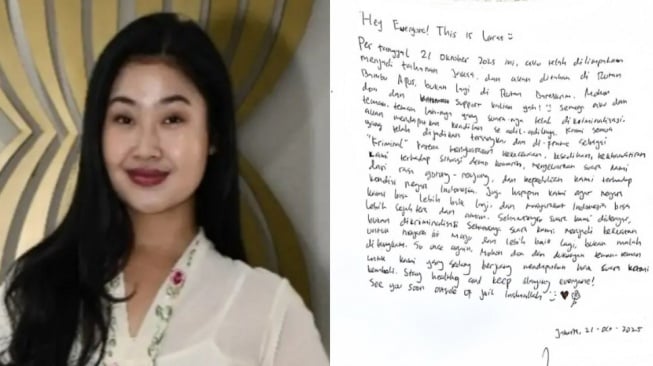 Hey Everyone! This is Laras :)
Per tanggal 21 Oktober 2025 ini, aku telah dilimpahkan
menjadi tahanan Jaksa dan akan ditahan di Rutan
Bambu Apus, bukan lagi di Rutan Bareskrim. Mohon
doa dan support kalian yah! semoga aku dan
teman-teman lainnya yang suara-nya telah dikriminalisasi
akan mendapatkan keadilan se adil-adilnya. Kami semua
yang telah dijadikan tersangka dan di-frame sebagai
"Kriminal" karena mengeluarkan kekecewaan, kesedihan, kekhawatiran
kami terhadap situasi kemarin, suara kami
dari rasa dan kepedulian kami terhadap
kondisi negara Indonesia. harapan kami agar negara
kami bisa lebih baik lagi, dan masyarakat Indonesia bisa
lebih sejahtera dan aman. Seharusnya suara kami didengar,
bukan dikriminalisasi. Seharusnya suara kami menjadi kekuatan
untuk negara ini maju dan lebih baik lagi, bukan malah
dibungkam. So once again, Mohon doa dan dukungan teman-teman
untuk kami yang sedang berjuang mendapatkan suara kami
kembali. Stay healthy and keep everyone!
See you soon outside of jail Inshaallah
Jakarta, 21-Oct-2025